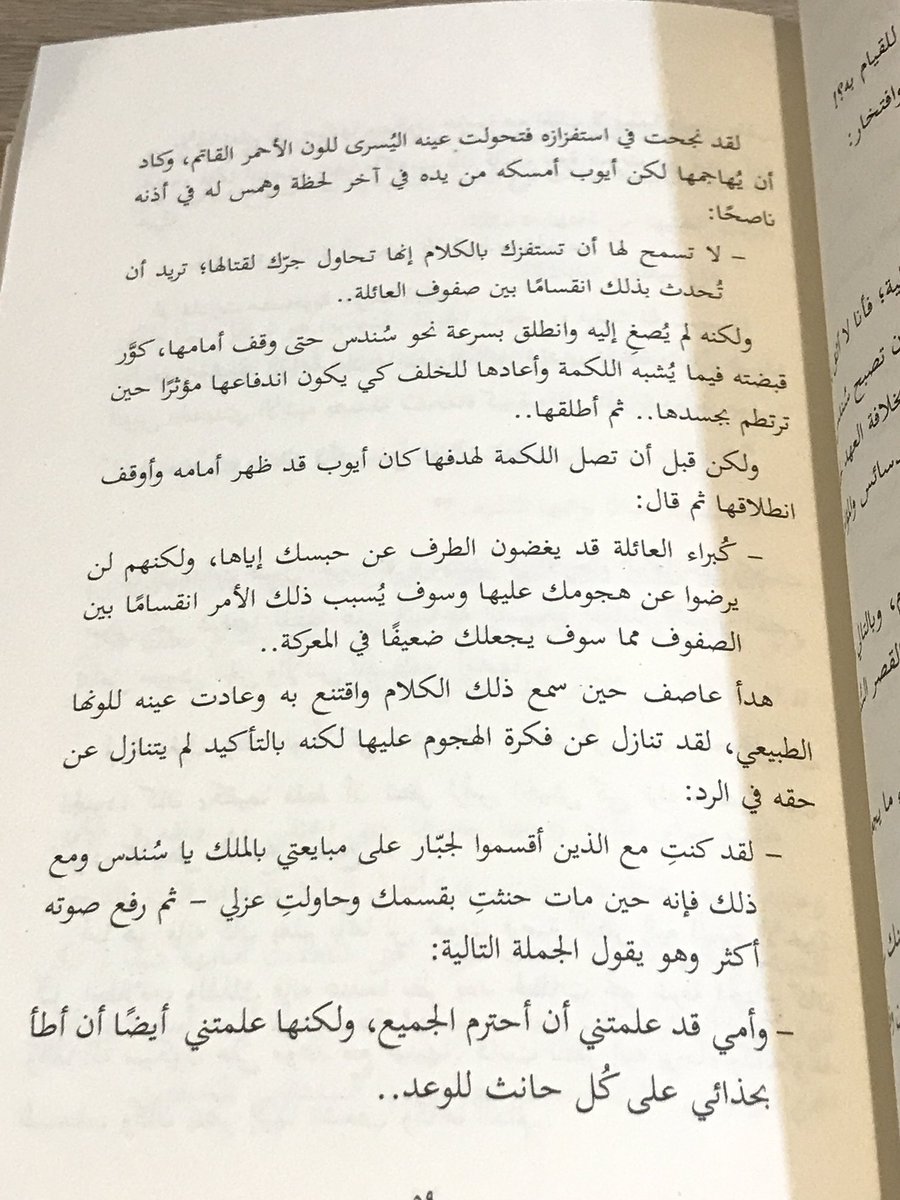 لقد نجحت في استفزازه فتحولت عينه اليُسرى للون الأحمر القاتم، وكاد
أن يُهاجمها لكن أيوب أمسكه من يده في آخر لحظة وهمس له في أذنه
ناصحًا:
– لا تسمح لها أن تستفزك بالكلام إنها تحاول جرّك لقتالها؛ تريد أن
تُحدث بذلك انقسامًا بين صفوف العائلة..
ولكنه لم يُصغِ إليه وانطلق بسرعة نحو سُندس حتى وقف أمامها، كوَّر
قبضته فيما يُشبه اللكمة وأعادها للخلف كي يكون اندفاعها مؤثرًا حين
ترتطم بجسدها.. ثم أطلقها..
ولكن قبل أن تصل اللكمة لهدفها كان أيوب قد ظهر أمامه وأوقف
انطلاقها ثم قال:
– كُبراء العائلة قد يغضون الطرف عن حبسك إياها، ولكنهم لن
يرضوا عن هجومك عليها وسوف يُسبب ذلك الأمر انقسامًا بين
الصفوف مما سوف يجعلك ضعيفًا في المعركة..
هدأ عاصف حين سمع ذلك الكلام واقتنع به وعادت عينه للونها
الطبيعي، لقد تنازل عن فكرة الهجوم عليها لكنه بالتأكيد لم يتنازل عن
حقه في الرد:
– لقد كنتِ مع الذين أقسموا لجبّار على مبايعتي بالملك يا سُندس ومع
ذلك فإنه حين مات حنثتِ بقسمك وحاولتِ عزلي – ثم رفع صوته
أكثر وهو يقول الجملة التالية:
– وأمي قد علمتني أن أحترم الجميع، ولكنها علمتني أيضًا أن أطأ
بحذائي على كُل حانث للوعد..
٥٩
للقيام به؟!
وافتخار:
فأنا لا
تصبح
وبالتالي
القصر